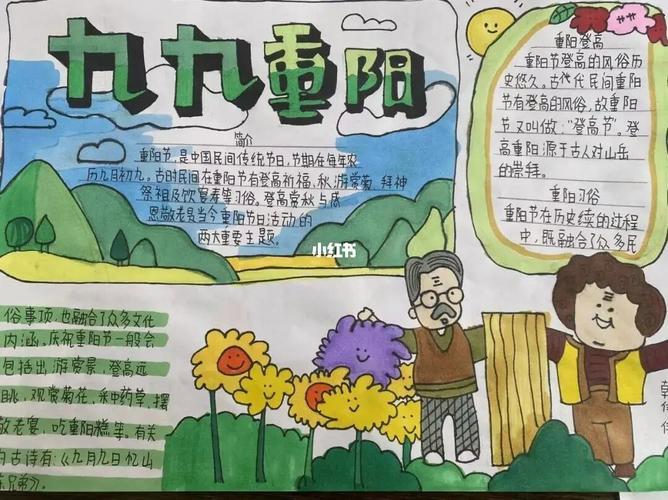 九九重阳
简介
重阳节,是中国民间传统节日,节期在每年农
历九月初九。古时民间在重阳节有登高祈福、秋游赏菊、拜神
祭祖及饮宴寿等习俗。登高赏秋与感
恩敬老是当今重阳节日活动的
两大重要主题。
重阳登高
重阳节登高的风俗历
史悠久。古代代民间重阳
节有登高的风俗,故重阳
节又叫做:“登高节”。登
高重阳源于古人对山岳
的崇拜。
重阳习俗
重阳节在历史续的过程
中,既融合了众多民
俗事项,也融合了众多文化
内涵。庆祝重阳节一般会
包括出游赏景、登高远
眺、观赏菊花、
敬老宴、吃重阳糕等。有关
的古诗有:《九月九日忆山
东兄弟》。
小红书